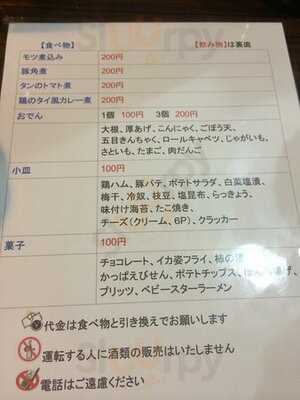 【食べ物】 【飲み物】は裏面
モツ煮込み 200円
豚角煮 200円
タンのトマト煮 200円
鶏のタイ風カレー煮 200円
おでん 1個 100円 3個 200円
大根、厚あげ、こんにゃく、ごぼう天、
五目きんちゃく、ロールキャベツ、じゃがいも、
さといも、たまご、肉だんご
小皿 100円
鶏ハム、豚パテ、ポテトサラダ、白菜塩漬、
梅干、冷奴、枝豆、塩昆布、らっきょう、
味付け海苔、たこ焼き、
チーズ(クリーム、6P)、クラッカー
菓子 100円
チョコレート、イカ姿フライ、柿の
かっぱえびせん、ポテトチップス、
プリッツ、ベビースターラーメン
代金は食べ物と引き換えでお願いします
運転する人に酒類の販売はいたしません
電話はご遠慮ください